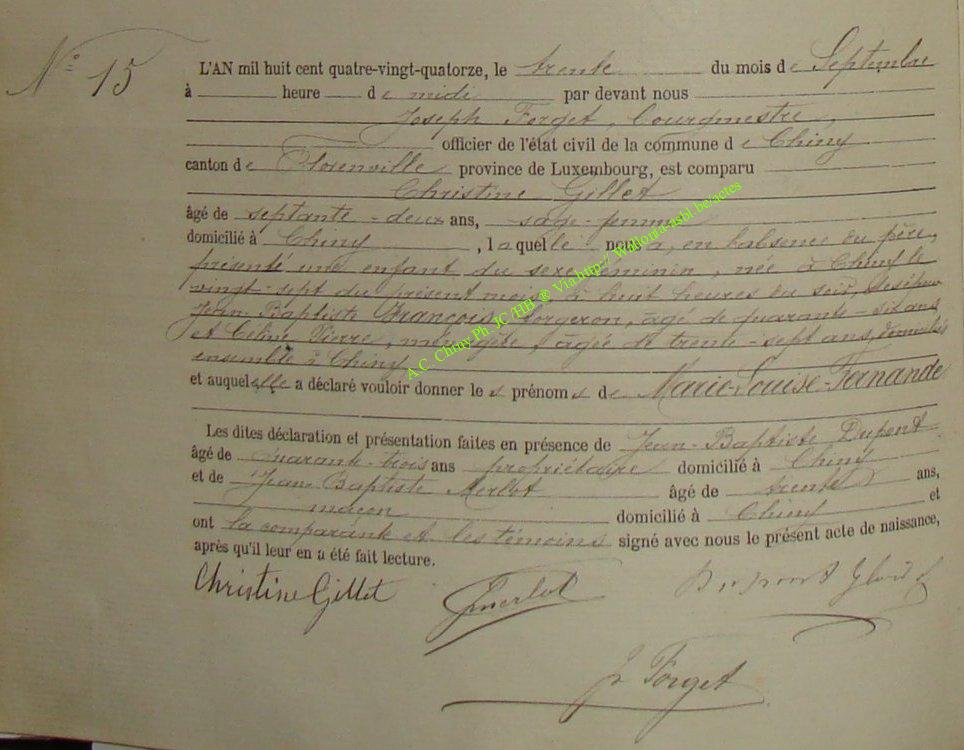 N° 15
L'AN mil huit cent quatre-vingt-quatorze, le trente du mois de Septembre
à heure de midi par devant nous
Joseph Forget, Bourgmestre,
officier de l'état civil de la commune de Chiny
canton de Florenville province de Luxembourg, est comparu
Christine Gillet
âgé de septante-deux ans, sage-femme
domicilié à Chiny, laquelle nous a, en l'absence du père,
présenté une enfant du sexe féminin, née à Chiny le
vingt-sept du présent mois à huit heures du soir, des époux
Jean Baptiste François, forgeron, âgé de quarante-six ans
et Céline Pierre, ménagère, âgée de trente-sept ans, domiciliés
ensemble à Chiny
et auquel elle a déclaré vouloir donner les prénoms de Marie-Louise-Fernande
Les dites déclaration et présentation faites en présence de Jean-Baptiste Dupont
âgé de quarante-trois ans propriétaire domicilié à Chiny
et de Jean-Baptiste Merlot âgé de trente ans,
maçon domicilié à Chiny et
ont la comparante et les témoins signé avec nous le présent acte de naissance,
après qu'il leur en a été fait lecture.
Christine Gillet Jmerlot Dupont
J. Forget
A.C. Chiny Ph. JC /HB ® Via http:// Wallonia-asbl.be/actes